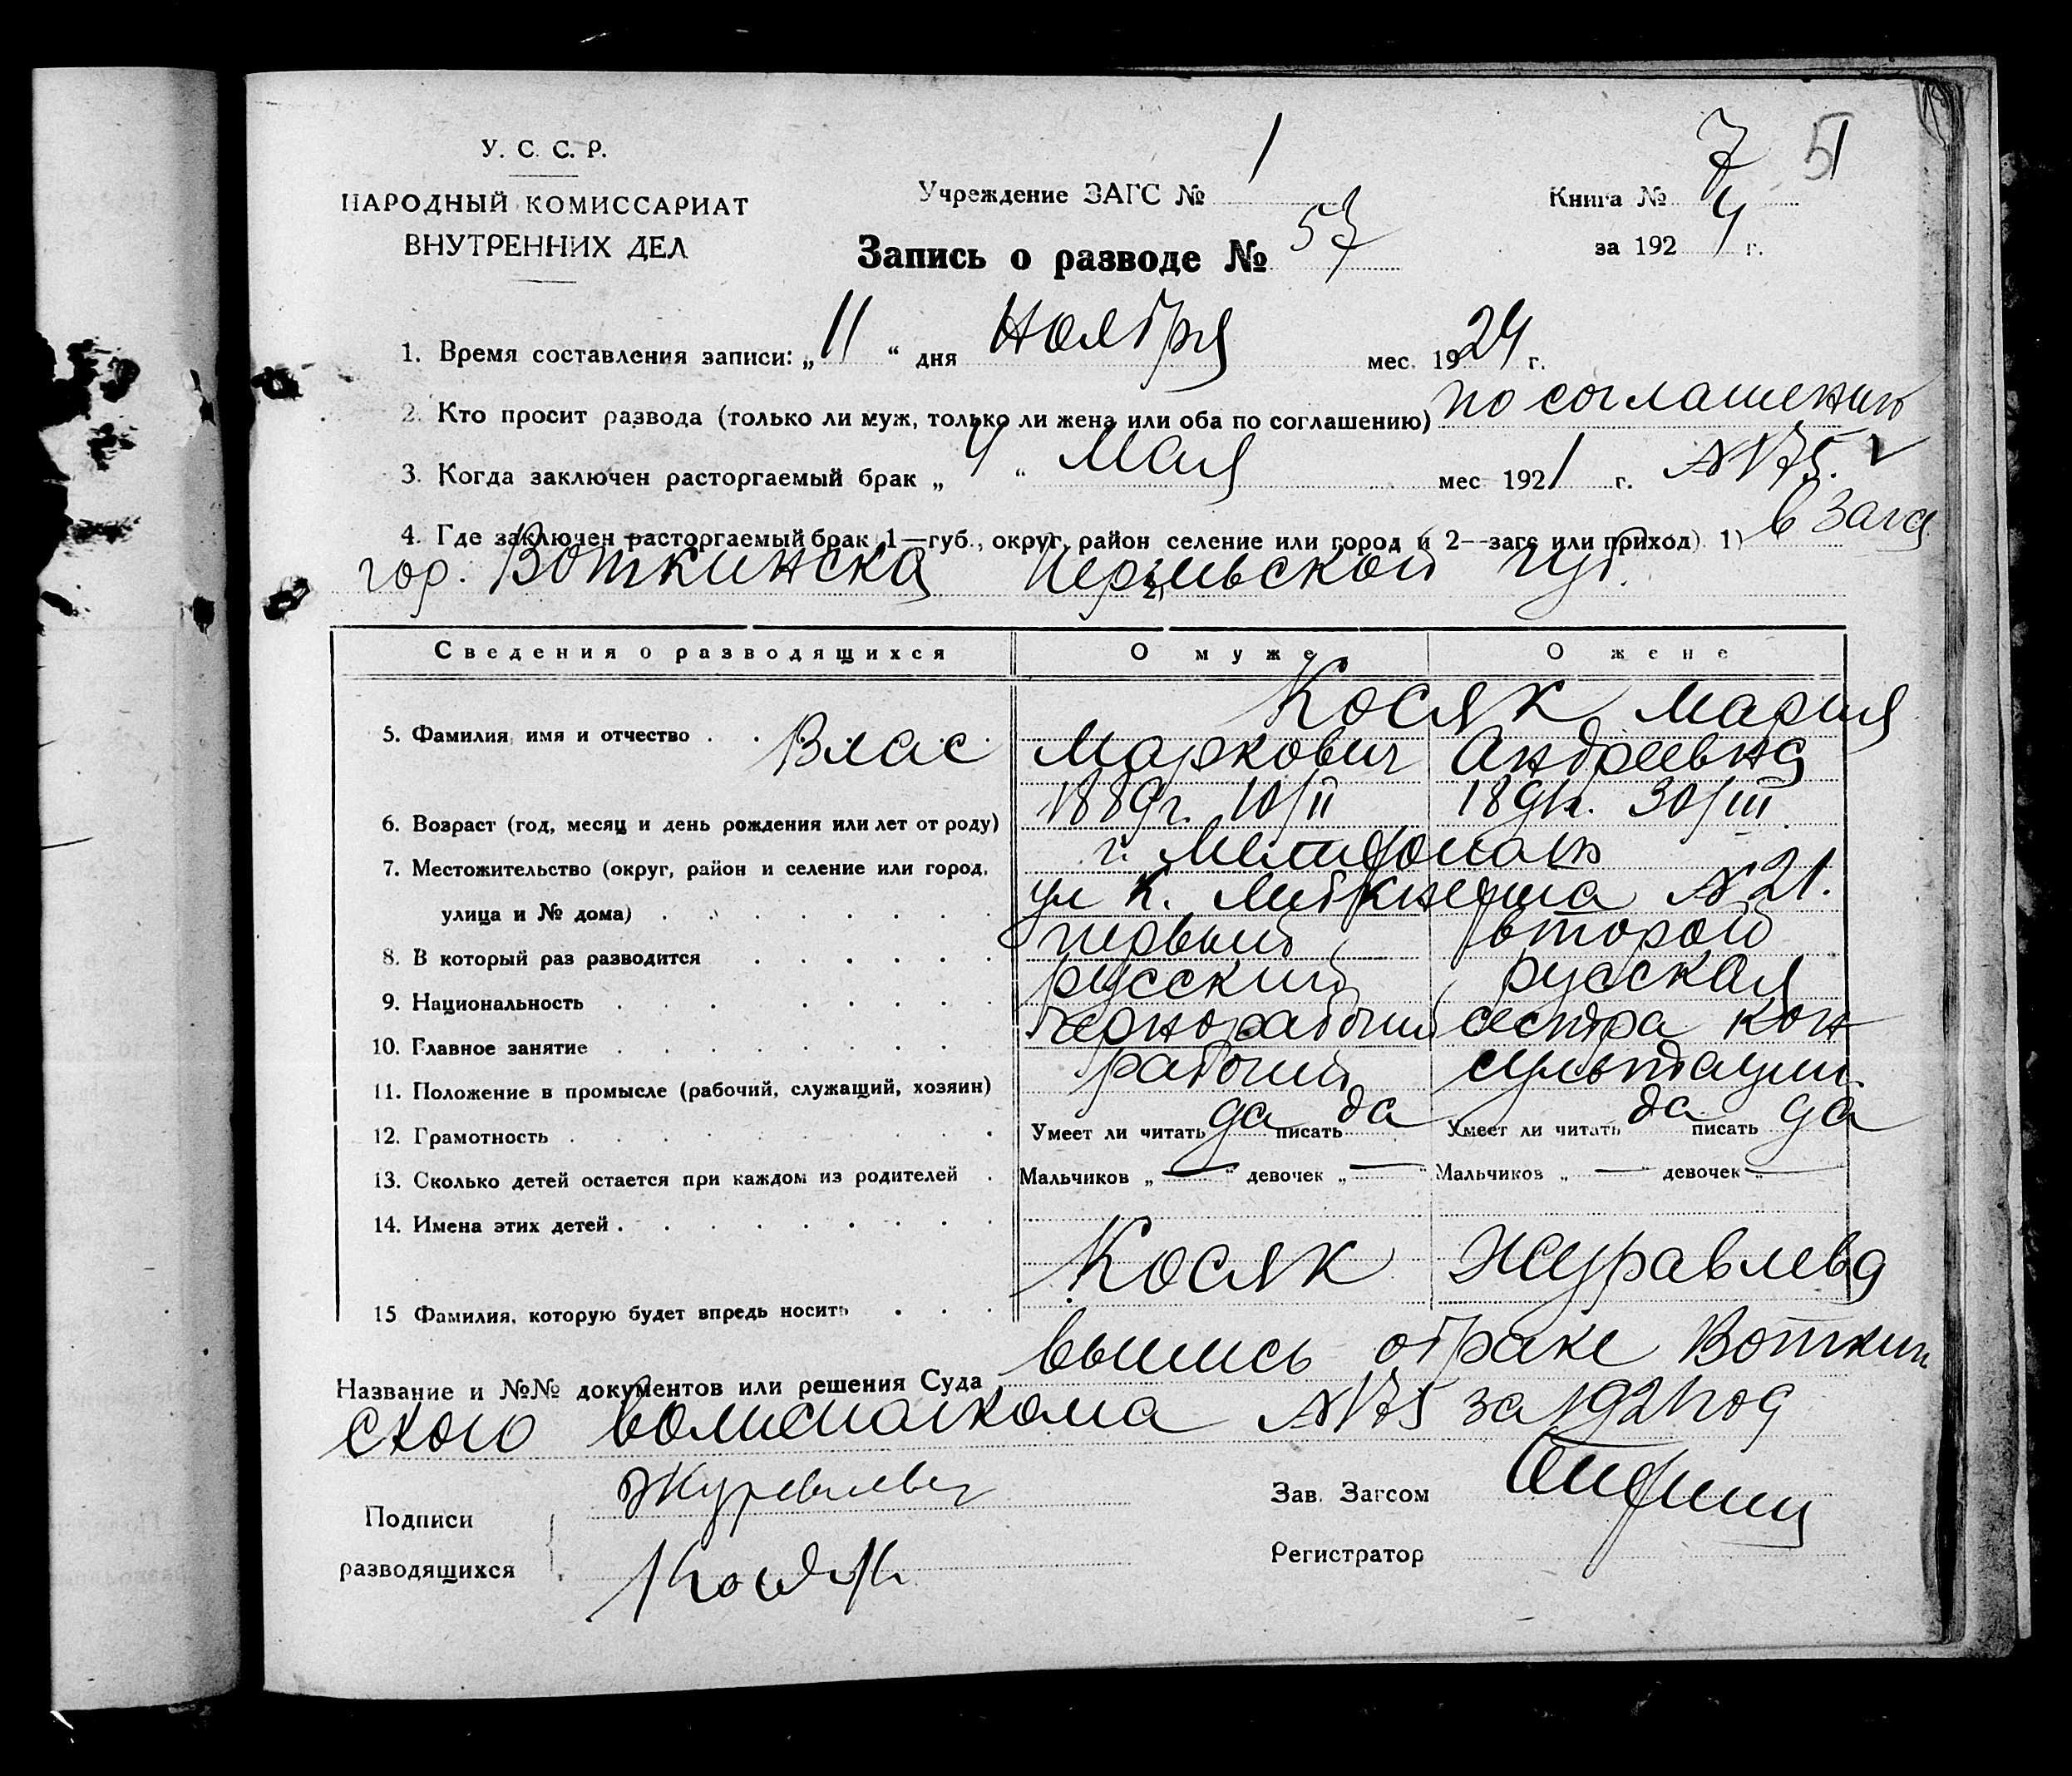 У. С. С. Р.
НАРОДНЫЙ КОМИССАРИАТ
ВНУТРЕННИХ ДЕЛ
Учреждение ЗАГС № 1
Книга № 7 51
за 1924 г.
Запись о разводе № 57
1. Время составления записи: „11“ дня Ноября мес. 1924 г.
2. Кто просит развода (только ли муж, только ли жена или оба по соглашению) по соглашению
3. Когда заключен расторгаемый брак „4“ Мая мес 1921 г. №175.
4. Где заключен расторгаемый брак 1—губ., округ, район селение или город и 2--загс или приход) 1) в Загсе
гор. Воткинска 2) Пермской губ.
Сведения о разводящихся О муже О жене
Косяк Мария
5. Фамилия, имя и отчество Влас Маркович Андреевна
6. Возраст (год, месяц и день рождения или лет от роду) 1889г. 10/II 1891г. 30/III
7. Местожительство (округ, район и селение или город, г. Мелитополь
улица и № дома) ул К. Либкнехта №21.
8. В который раз разводится первый второй
9. Национальность русский русская
10. Главное занятие чернорабочий сестра кон
11. Положение в промысле (рабочий, служащий, хозяин) рабочий сультации.
12. Грамотность Умеет ли читать да писать да Умеет ли читать да писать да
13. Сколько детей остается при каждом из родителей Мальчиков „—“ девочек „—“ Мальчиков „—“ девочек „—
14. Имена этих детей
15 Фамилия, которую будет впредь носить Косяк Журавлева
Название и №№ документов или решения Суда выпись о браке Воткин
ского №175 за 1921 год
Подписи
разводящихся
Журавлева
Косяк
Зав. Загсом
Регистратор